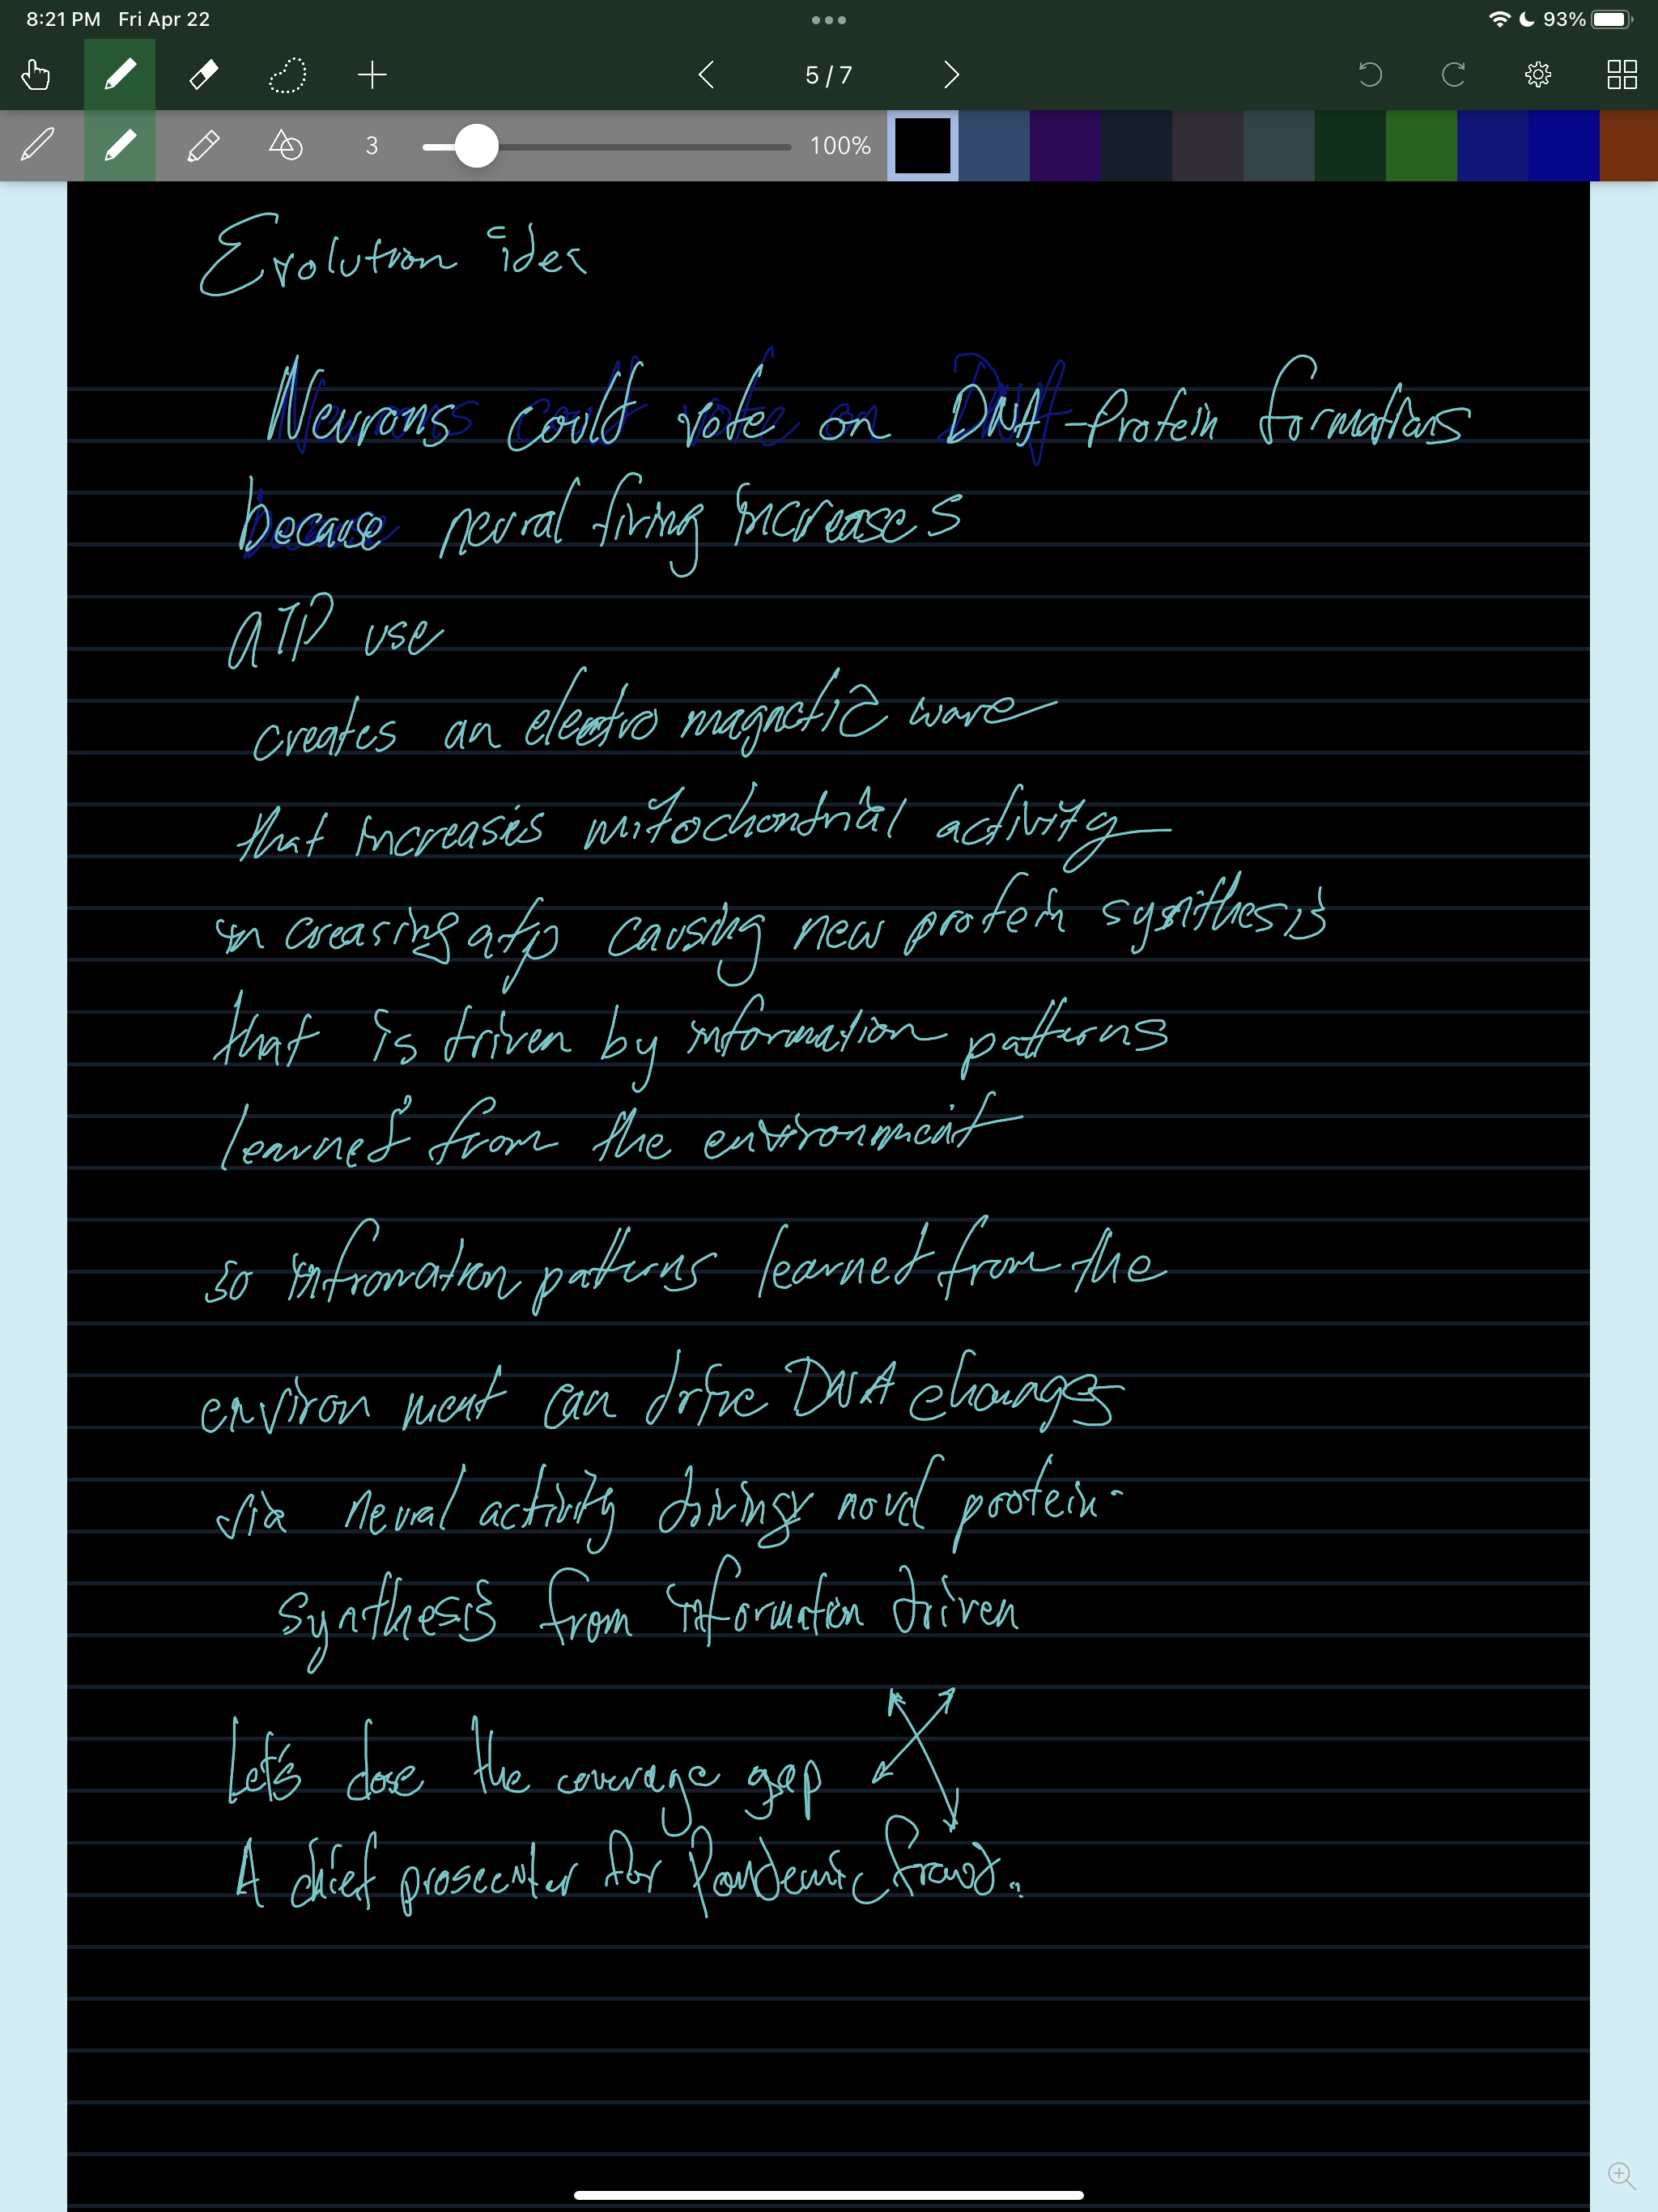 8:21 PM Fri Apr 22
93%
5 / 7
3
100%
Evolution idea
Neurons could vote on DNA-Protein formations
because neural firing increases
ATP use
creates an electro magnetic wave
that increases mitochondrial activity
in creasing atp causing new protein synthesis
that is driven by information patterns
learned from the environment
so infromation patterns learned from the
environ ment can drive DNA changes
via neural activity driving novel protein-
synthesis from information driven
Let's close the coverage gap
A chief prosecutor for Pandemic fraud..